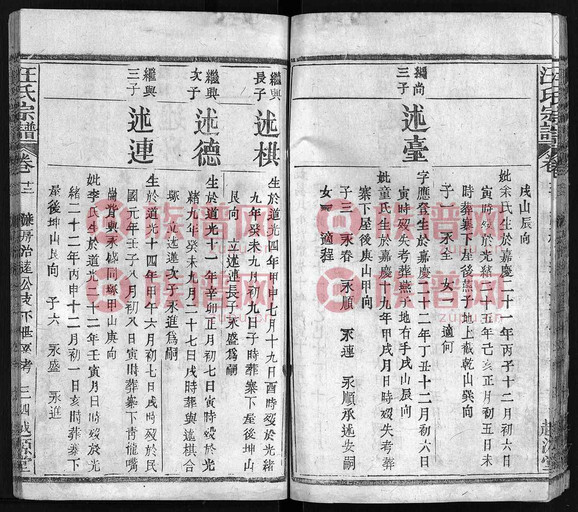 戌山辰向
妣朱氏生於嘉慶二十一年丙子十二月初六日
寅時歿於光緒十五年己亥正月初五日未
時葬寨下屋後燕子地上截乾山巽向
子一 永全 女一 適何
繼尚
三子
述臺
字應萱生於嘉慶二十二年丁丑十二月初六日
寅時歿失考葬燕子地右手戌山辰向
妣童氏生於嘉慶十九年甲戌月日時歿失考葬
寨下屋後庚山甲向
子三 永春 永順 永連 永順承述安嗣
女一 適程
繼興
長子
述棋
生於道光四年甲申七月十九日酉時歿於光緒
九年癸未九月初九日子時葬寨下屋後坤山
艮向 立述連長子永盛爲嗣
繼興
次子
述德
生於道光十一年辛卯正月初七日寅時歿於光
緒九年癸未九月二十七日戌時葬與述棋合
塚 立述連次子永進爲嗣
繼興
三子
述連
生於道光十四年甲午六月初七日戌時歿於民
國元年壬子八月初八日寅時葬寨下青龍嘴
與曾興永修同塚甲山庚向
妣李氏生於道光二十二年壬寅月日時歿於光
緒二十二年丙申十二月初一日亥時葬寨下
屋後坤山艮向 子六 永盛 永進
汪氏宗譜
卷
三四
族谱网
zupu.cn